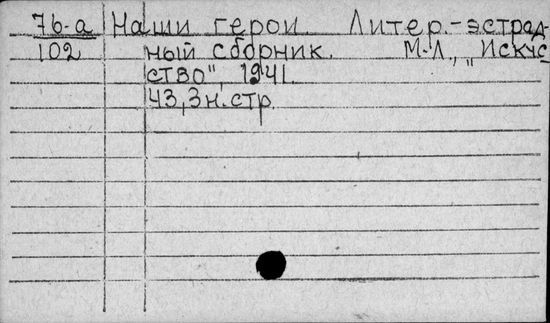 7б-а Наши герои. Литер.-эстрад-
102 ный сборник. М-Л., „Искус
ство", 1941.
43,3н.стр.